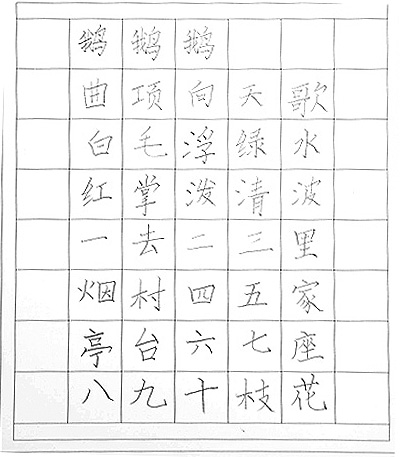 鹅鹅鹅
曲项向天歌
白毛浮绿水
红掌泼清波
一去二三里
烟村四五家
亭台六七座
八九十枝花